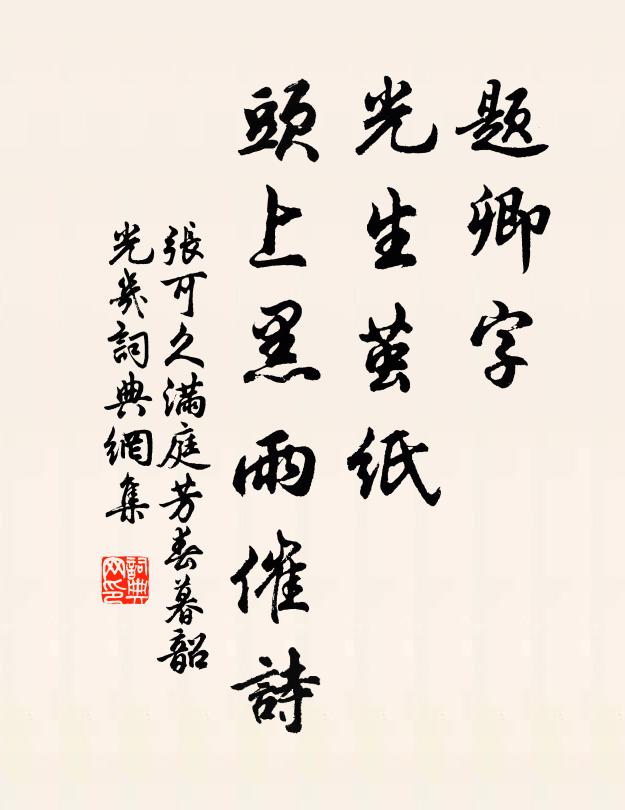 題卿字
光生茧紙
頭上黑雨催詩
張可久滿庭芳春暮韶
光幾詞典網集
詞典
网印